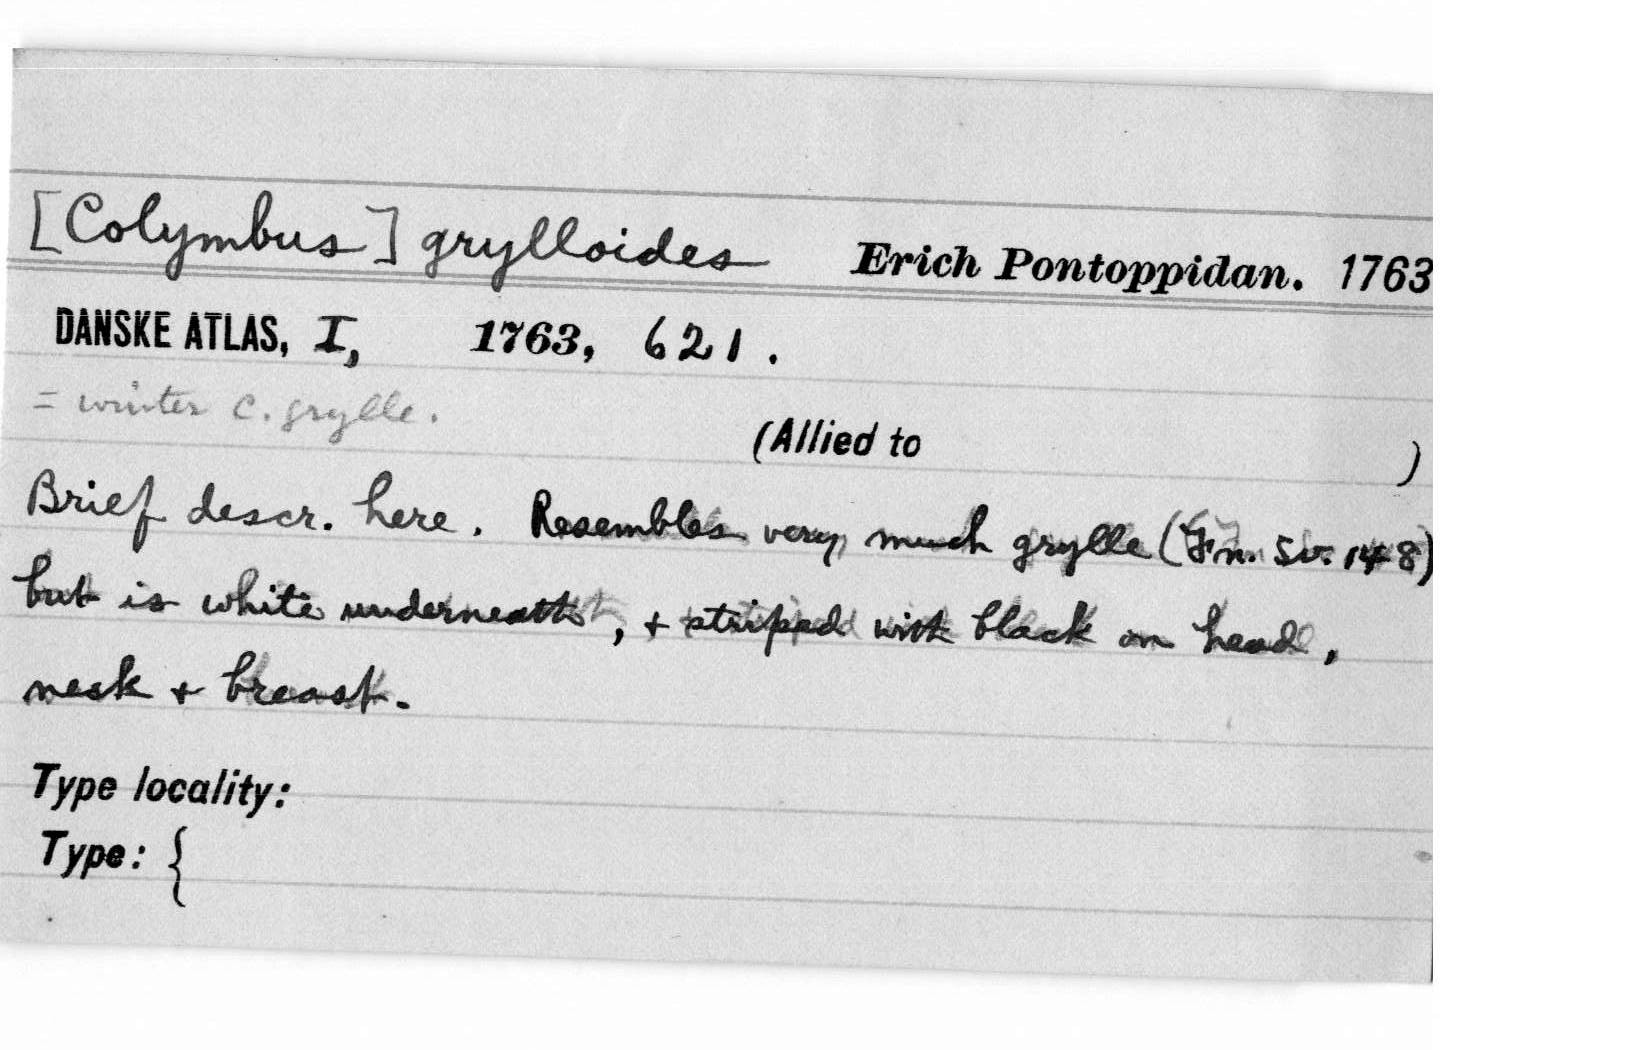 [Colymbus] grylloides Erich Pontoppidan. 1763
DANSKE ATLAS, I, 1763, 621.
= winter C. grylle.
(Allied to )
Brief descr. here. Resembles very much grylle (Fn. Sv. 148)
but is white underneath, + striped with black on head,
neck + breast.
Type locality:
Type: {